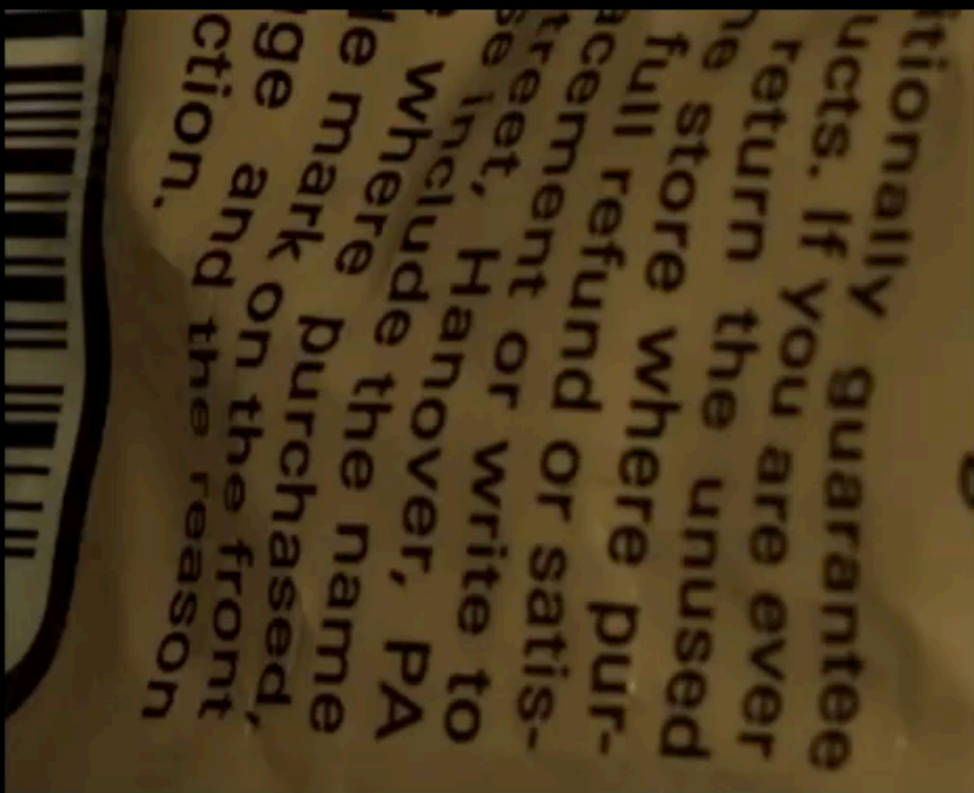 tionally guarantee
ucts. If you are ever
return the unused
he store where pur-
full refund or satis-
acement or write to
treet, Hanover, PA
se include the name
e where purchased,
de mark on the front
ge and the reason
ction.